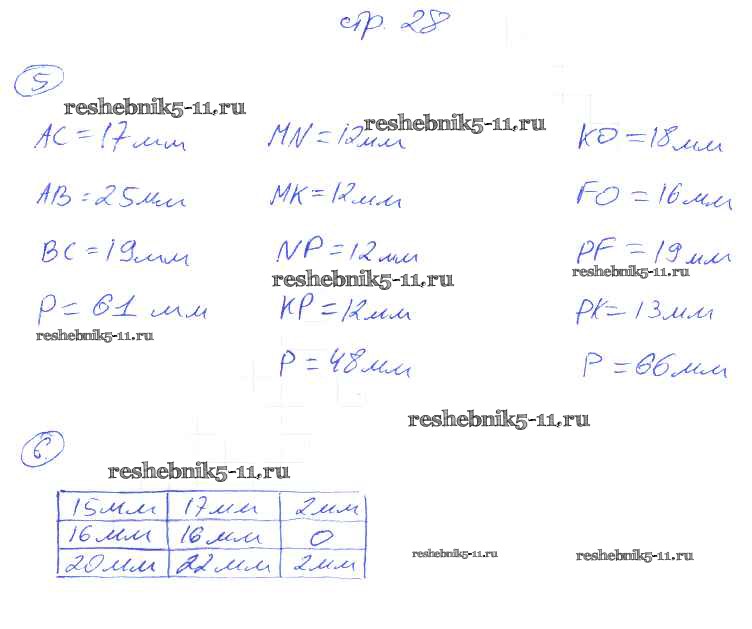 стр. 28
5
reshebnik5-11.ru
reshebnik5-11.ru
AC = 17 мм MN = 12 мм KO = 18 мм
AB = 25 мм MK = 12 мм FO = 16 мм
BC = 19 мм NP = 12 мм PF = 19 мм
reshebnik5-11.ru
reshebnik5-11.ru
P = 61 мм KP = 12 мм PK = 13 мм
reshebnik5-11.ru
P = 48 мм P = 66 мм
reshebnik5-11.ru
6.
reshebnik5-11.ru
15 мм 17 мм 2 мм
16 мм 16 мм 0
20 мм 22 мм 2 мм
reshebnik5-11.ru
reshebnik5-11.ru